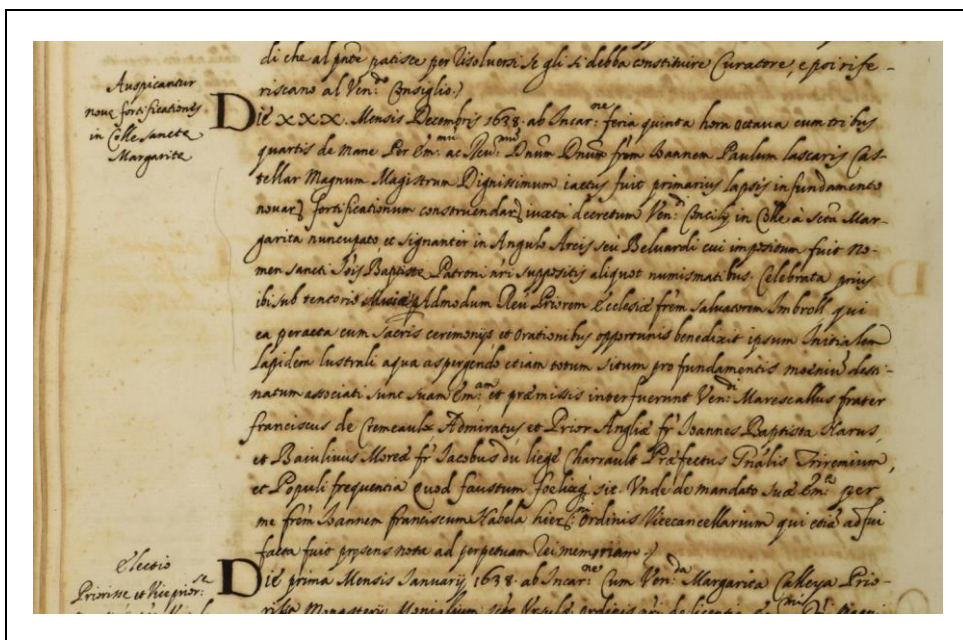 di che al pñte patisce per risolversi se gli si debba constituire Curatore, e poi rife-
riscano al Ven: Consiglio.
Auspicantur
nove fortificationes
in Colle Sancte
Margarite
Die XXX. Mensis Decembris 1638. ab Incar:ne feria quinta hora octava cum tribus
quartis de mane Per Em:mũ ac Rev:mũ Dnum Dnum frem Ioannem Paulum lascaris Cas-
tellar Magnum Magistrum Dignissimum iactus fuit primarius lapis in fundamento
novar fortificationum construendar iuxta decretum Ven: Concilij in Colle à Sctã Mar-
garita nuncupato et signanter in Angulo Arcis seu Beluardi cui impositum fuit no-
men Sancti Jois Baptiste Patroni nri suppositis aliquot numismatibus. Celebrata prius
ibi sub tentorio Admodum Rev: Priorem Ecclesiæ frem Salvatorem Imbroll, qui
ea peracta cum sacris ceremonijs et orationibus opportunis benedixit ipsum Initialem
Lapidem lustrali aqua aspergendo etiam totum situm pro fundamentis moeniũ desti-
natum associati sunt suam Em:am et præmissis interfuerunt Ven:di Marescallus frater
franciscus de Cremeaulx Admiratus et Prior Angliæ fr Ioannes Baptista Harus,
et Baiulivus Moreæ fr Jacobus du liege Charrault Præfectus Gnalis Triremium,
et Populi frequentia Quod faustum foelixq sit. Unde de mandato suæ Em:æ per
me frem Ioannem franciscum Habela hier: Ordinis Vicecancellarium qui etiã adfui
facta fuit presens nota ad perpetuam Rei memoriam.
Electio
Priorisse et Vice prior:se
Die prima Mensis Ianuarij 1638. ab Incar:ne Cum Ven:da Margarita Calleya Prio-
risse Monasterij Monialium Ursule ordinis nri de licentia